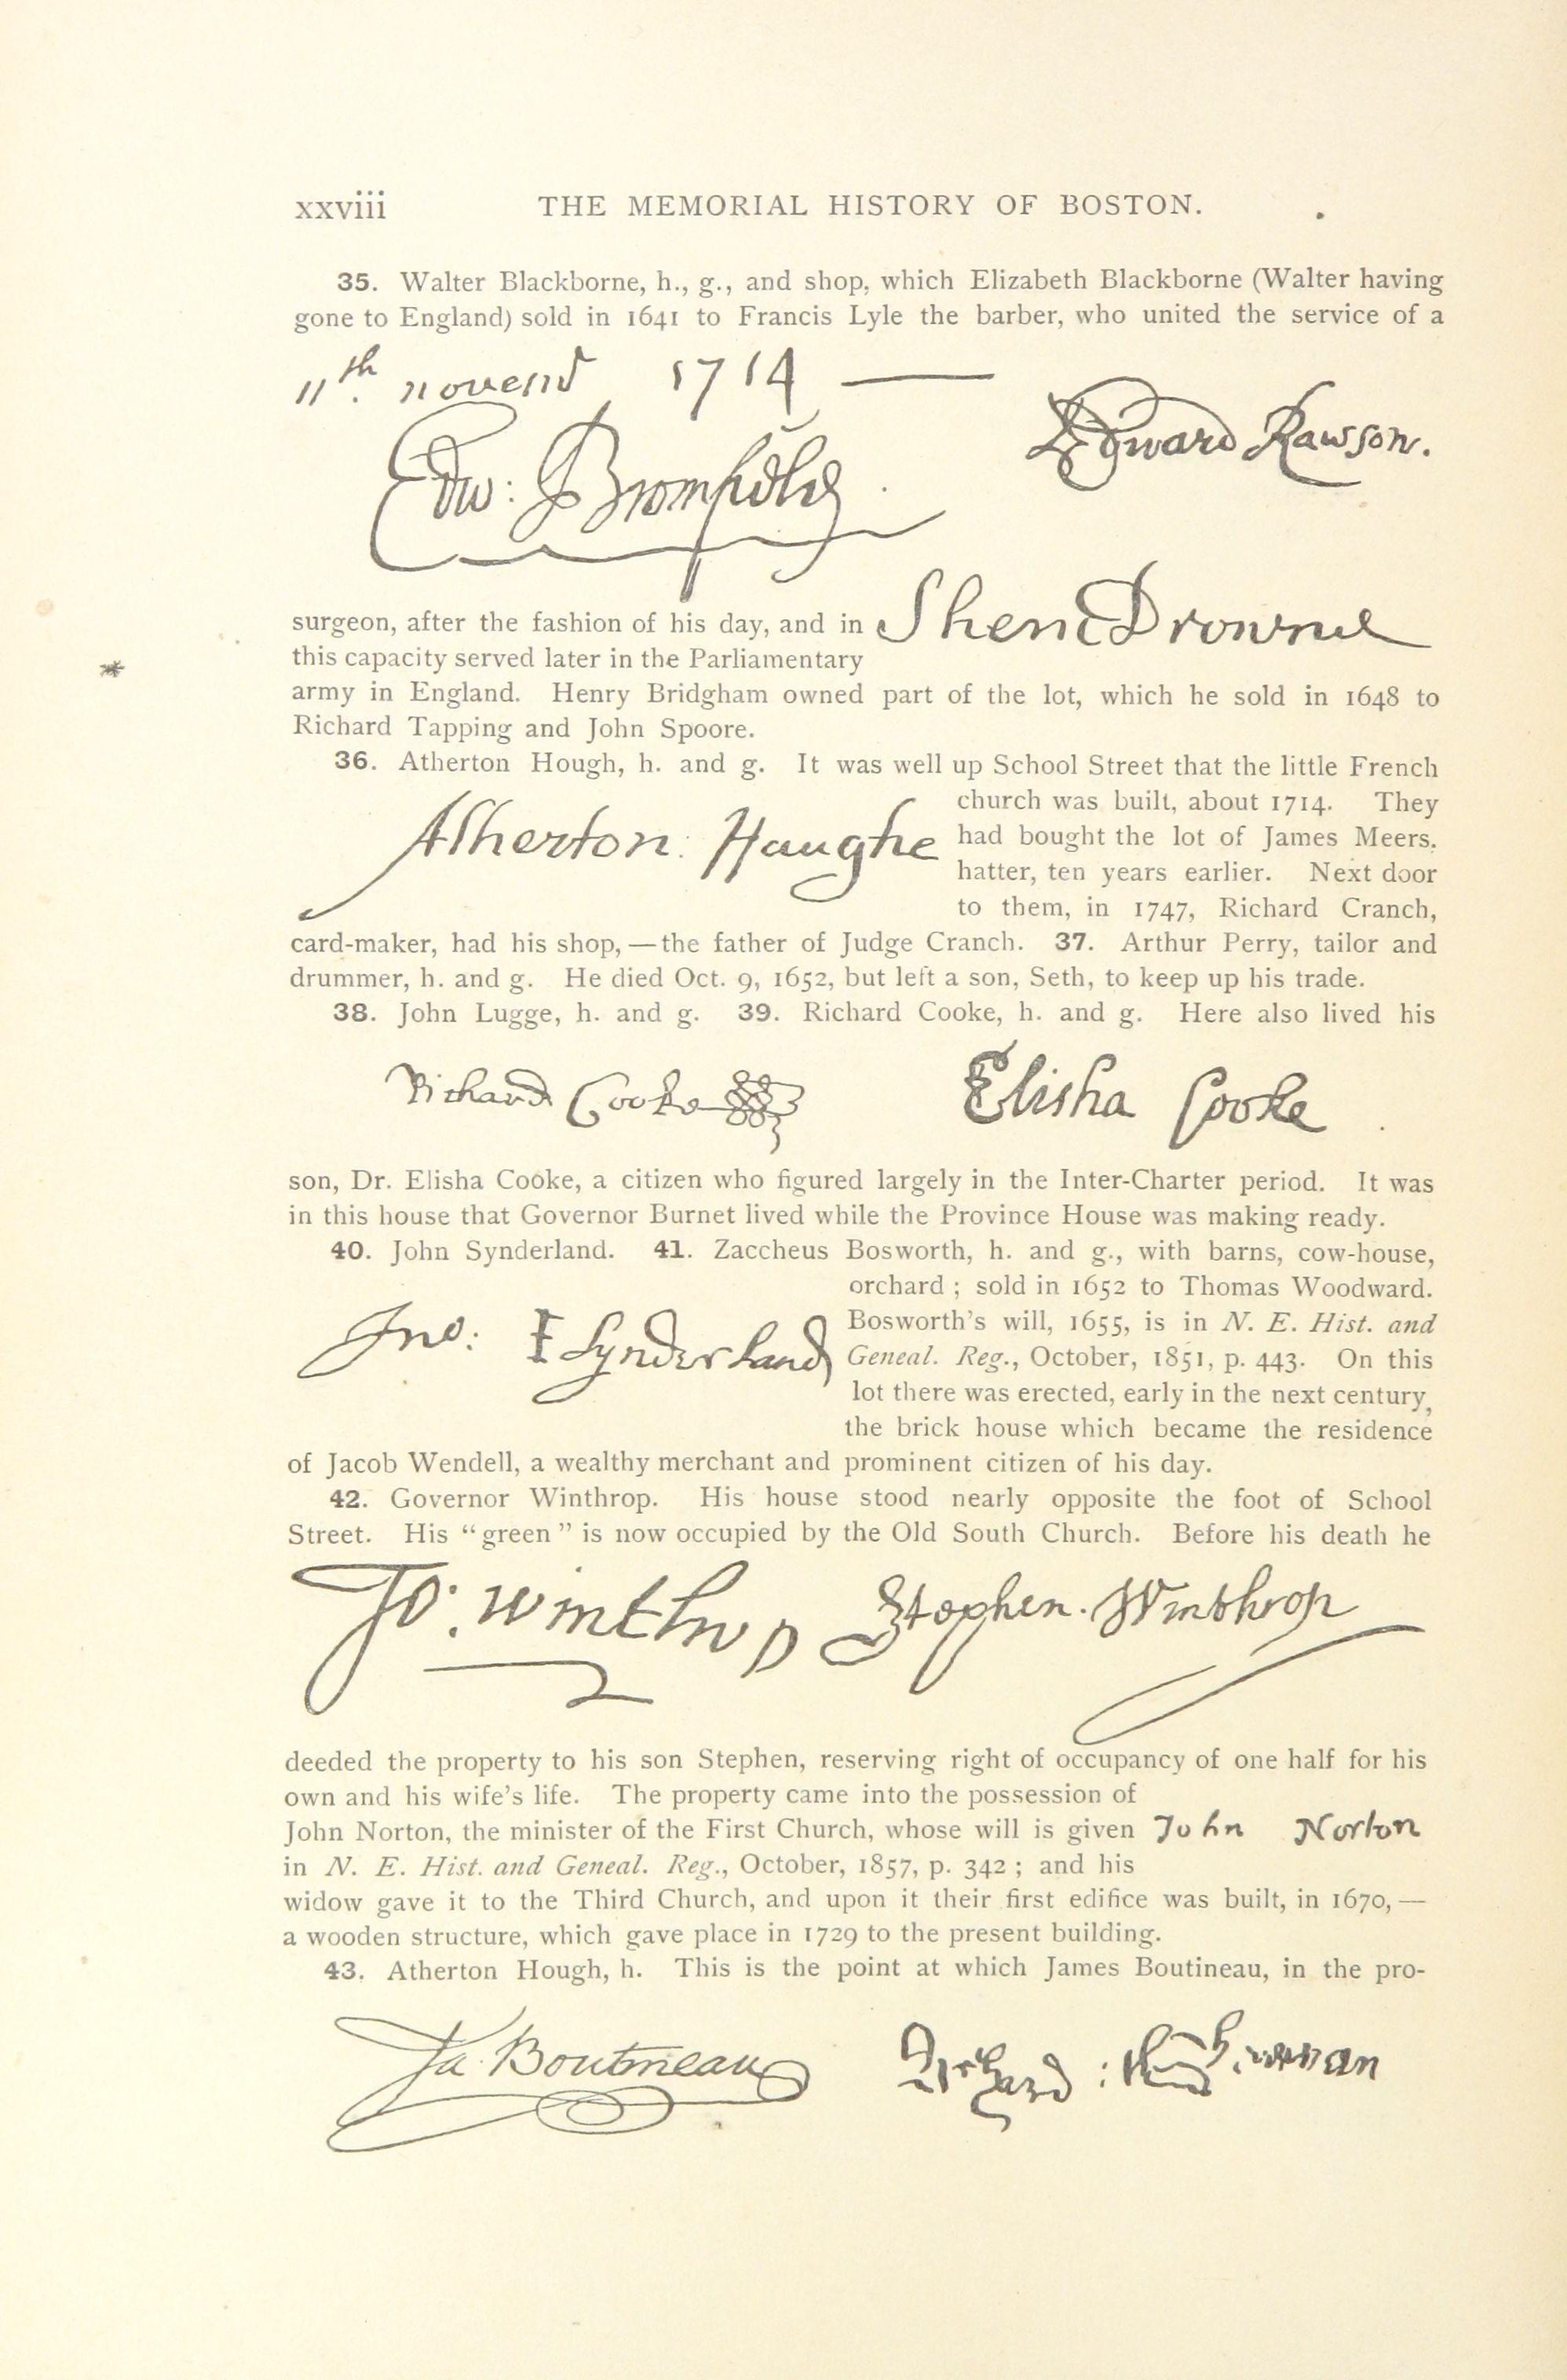 xxviii THE MEMORIAL HISTORY OF BOSTON.
35. Walter Blackborne, h., g., and shop, which Elizabeth Blackborne (Walter having
gone to England) sold in 1641 to Francis Lyle the barber, who united the service of a
11th. 1714 —
Edward Rawson.
Edw: Bromfield
Shem Drowne
surgeon, after the fashion of his day, and in
this capacity served later in the Parliamentary
army in England. Henry Bridgham owned part of the lot, which he sold in 1648 to
Richard Tapping and John Spoore.
36. Atherton Hough, h. and g. It was well up School Street that the little French
church was built, about 1714. They
Atherton Haughe
had bought the lot of James Meers,
hatter, ten years earlier. Next door
to them, in 1747, Richard Cranch,
card-maker, had his shop, — the father of Judge Cranch. 37. Arthur Perry, tailor and
drummer, h. and g. He died Oct. 9, 1652, but left a son, Seth, to keep up his trade.
38. John Lugge, h. and g. 39. Richard Cooke, h. and g. Here also lived his
Richard Cooke Elisha Cooke
son, Dr. Elisha Cooke, a citizen who figured largely in the Inter-Charter period. It was
in this house that Governor Burnet lived while the Province House was making ready.
40. John Synderland. 41. Zaccheus Bosworth, h. and g., with barns, cow-house,
orchard ; sold in 1652 to Thomas Woodward.
Jno: Synderland
Bosworth's will, 1655, is in N. E. Hist. and
Geneal. Reg., October, 1851, p. 443. On this
lot there was erected, early in the next century,
the brick house which became the residence
of Jacob Wendell, a wealthy merchant and prominent citizen of his day.
42. Governor Winthrop. His house stood nearly opposite the foot of School
Street. His “green” is now occupied by the Old South Church. Before his death he
Jo: Winthrop Stephen. Winthrop
deeded the property to his son Stephen, reserving right of occupancy of one half for his
own and his wife's life. The property came into the possession of
John Norton, the minister of the First Church, whose will is given
John Norton
in N. E. Hist. and Geneal. Reg., October, 1857, p. 342 ; and his
widow gave it to the Third Church, and upon it their first edifice was built, in 1670, —
a wooden structure, which gave place in 1729 to the present building.
43. Atherton Hough, h. This is the point at which James Boutineau, in the pro-
Ja Boutineau